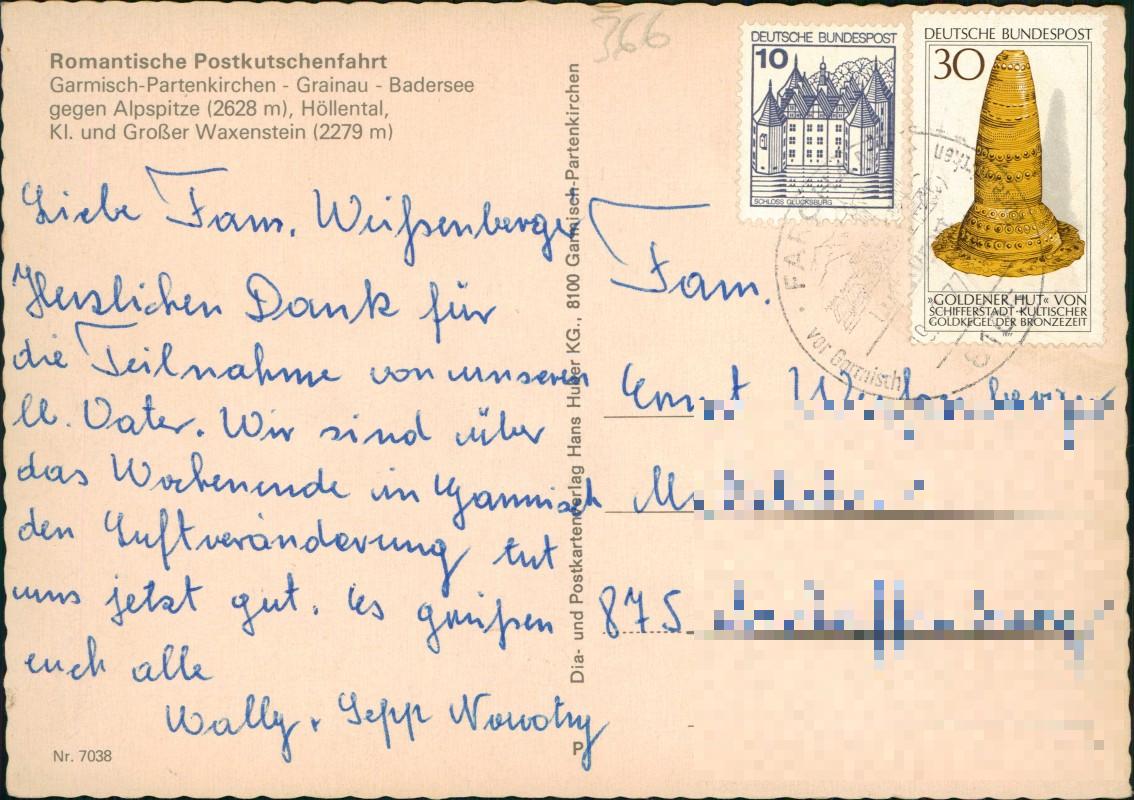 Romantische Postkutschenfahrt
Garmisch-Partenkirchen - Grainau - Badersee
gegen Alpspitze (2628 m), Höllental,
Kl. und Großer Waxenstein (2279 m)
366
Liebe Fam. Weißenberger
Herzlichen Dank für
die Teilnahme von unseren
ll. Vater. Wir sind über
das Wochenende in Garmisch
den Luftveränderung tut
uns jetzt gut. Es grüßen
euch alle
Wally + Sepp Nowotny
Nr. 7038
Dia- und Postkartenverlag Hans Huber KG., 8100 Garmisch-Partenkirchen
P
DEUTSCHE BUNDESPOST
10
SCHLOSS GLÜCKSBURG
DEUTSCHE BUNDESPOST
30
»GOLDENER HUT« VON
SCHIFFERSTADT-KULTISCHER
GOLDKEGEL DER BRONZEZEIT
vor Garmisch
Fam.
Ernst
875